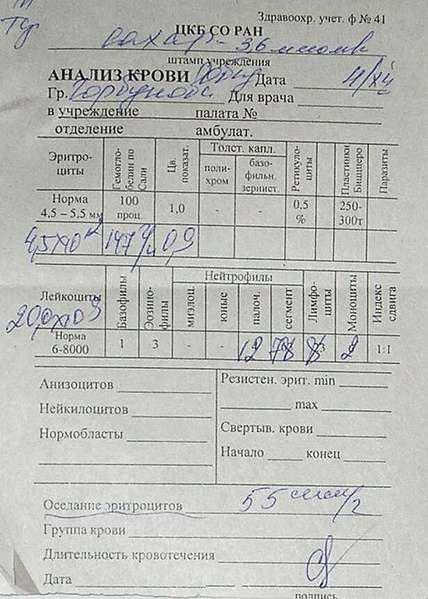 Здравоохр. учет. ф № 41
ЦКБ СО РАН
сахар - 3,6 ммоль
штамп учреждения
АНАЛИЗ КРОВИ Дата 4/XII
Гр. Для врача
в учреждение палата №
отделение амбулат.
Эритро-циты Гемогло-белин по Сали Цв. показат. Толст. капл. поли-хром базо-фильн. зернист. Ретикуло-циты Пластинки Бищцеро Паразиты
Норма 4,5 – 5,5 мм 100 проц. 1,0 - - 0,5 % 250-300т
4,5x10¹² 147 г/л 0,9
Нейтрофилы
Лейкоциты Базофилы Эозино-филы миэлош. юные палоч. сегмент Лимфо-циты Моноциты Индекс сдвига
20,0x10⁹
Норма 6-8000 1 3 - - 12 78 8 2 1:1
Анизоцитов Резистен. эрит. min
Нейкилоцитов max
Нормобласты Свертыв. крови
Начало конец
Оседание эритроцитов 55 мм/г
Группа крови
Длительность кровотечения
Дата
подпись